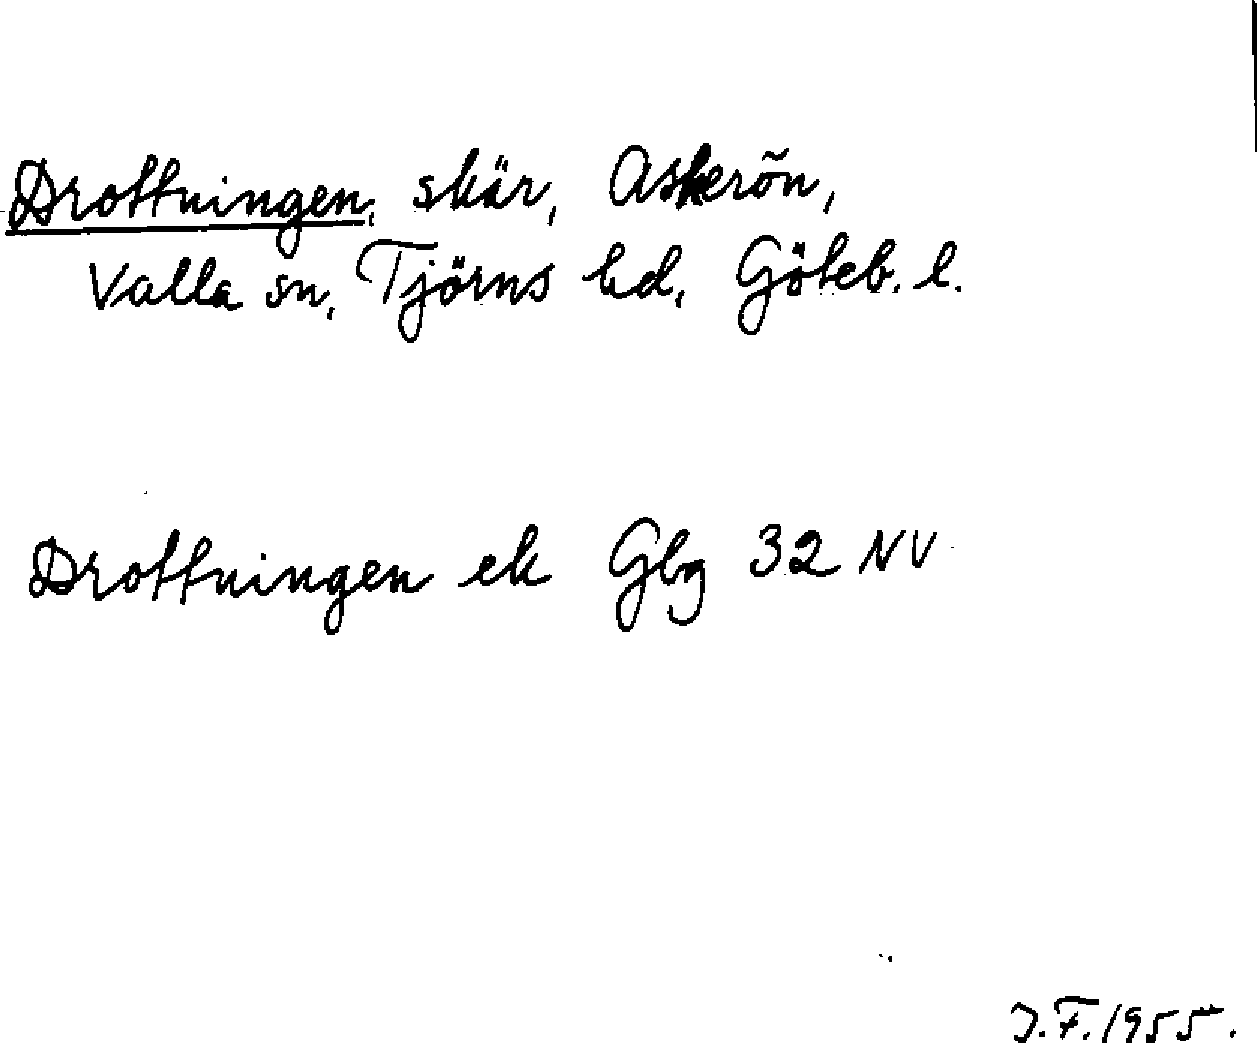 Drottningen, skär, Askerön,
Valla sn, Tjörns hd, Göteb. l.
Drottningen ek Gbg 32 NV
J.F. 1955.